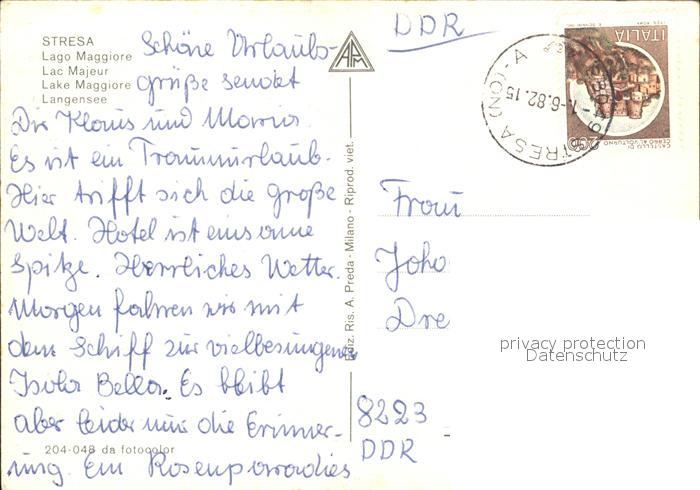 DDR
STRESA
Lago Maggiore
Lac Majeur
Lake Maggiore
Langensee
Schöne Urlaubs-
grüße sendet
Dir Klaus und Maria.
Es ist ein Traumurlaub.
Hier trifft sich die große
Welt. Hotel ist einsame
Spitze. Herrliches Wetter.
Morgen fahren wir mit
dem Schiff zur vielbesungenen
Isola Bella. Es bleibt
aber leider nur die Erinner-
ung. Ein Rosenparadies
204-048 da fotocolor
Ediz. Ris. A. Preda - Milano - Riprod. viet.
APM
STRESA (NO) A
1-6.82.15
ITALIA
CASTELLO DI
CERRO AL VOLTURNO
200
Frau
Joha
Dre
8223
DDR
privacy protection
Datenschutz